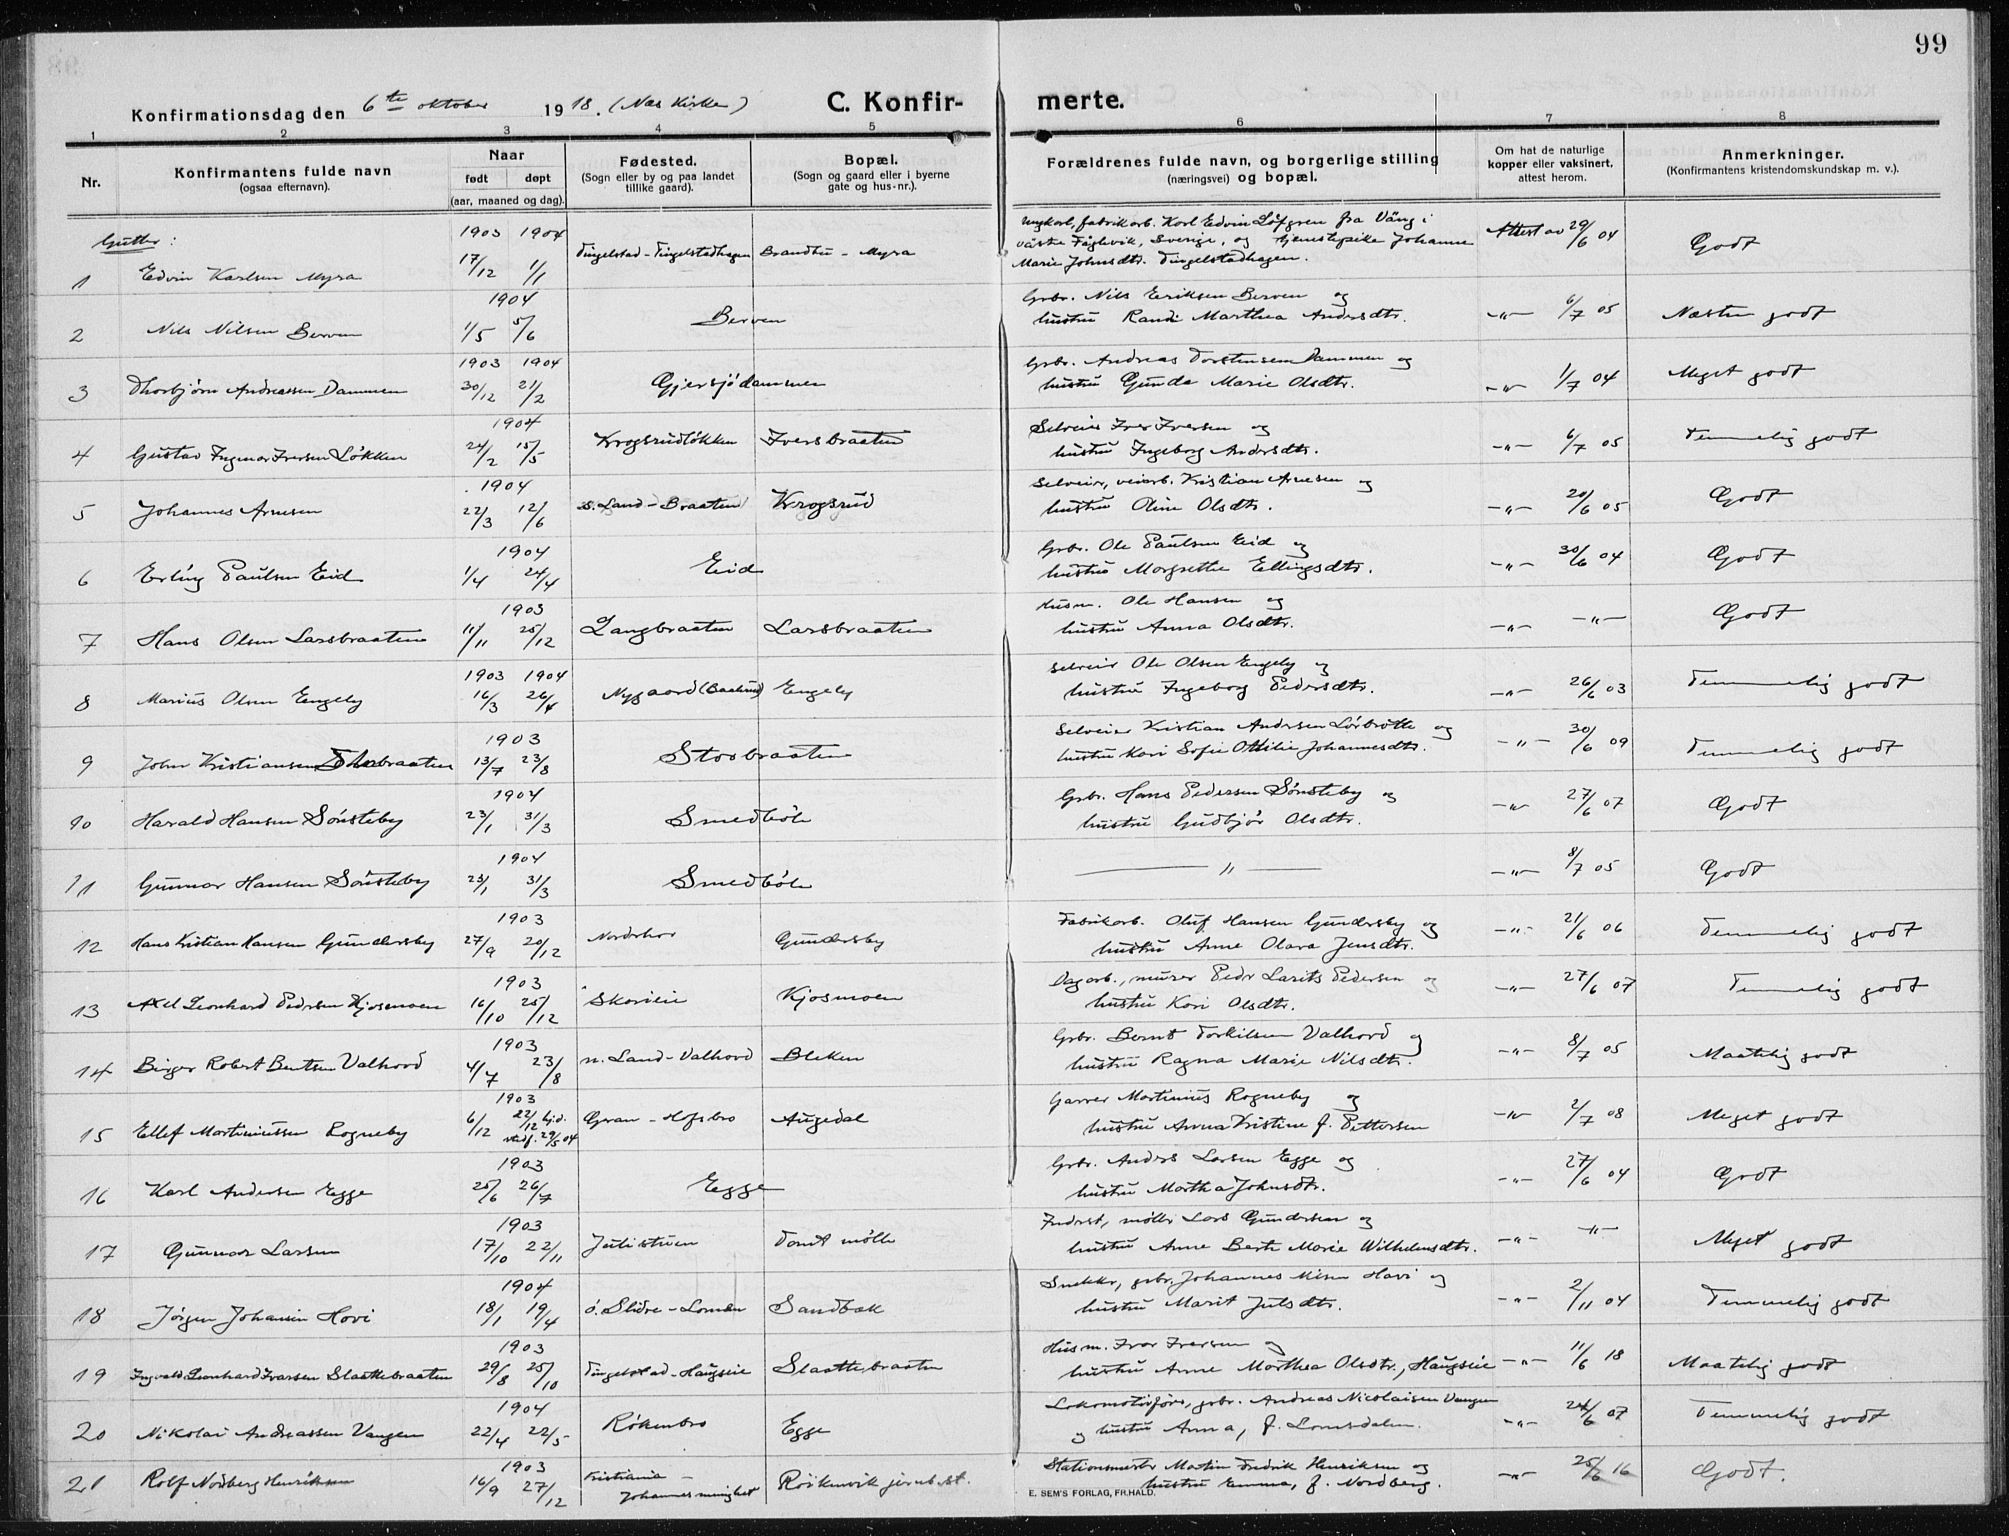 99
Konfirmationsdag den 6te oktober 1918. (Næs Kirke) C. Konfirmerte.
1 2 3 4 5 6 7 8
Nr. Konfirmantens fulde navn (ogsaa efternavn). Naar født døpt (aar, maaned og dag). Fødested. (Sogn eller by og paa landet tillike gaard). Bopæl. (Sogn og gaard eller i byerne gate og hus-nr.). Forældrenes fulde navn, og borgerlige stilling (næringsvei) og bopæl. Om hat de naturlige kopper eller vaksinert, attest herom. Anmerkninger. (Konfirmantens kristendomskundskap m. v.).
Gutter:
1903 1904 Ungkarl, fabrikarb. Karl Edvin Löfgren fra Väng i
1 Edvin Karlsen Myra 17/12 1/1 Tingelstad - Tingelstadhagen Brandbu - Myra västre Fåglevik, Sverige, og tjenestepike Johanne Attest av 29/6 04 Godt
Marie Johnsdtr. Tingelstadhagen.
1904 Grbr. Nils Eriksen Berven og
2 Nils Nilsen Berven 1/5 5/6 Berven hustru Randi Marthea Andersdtr. -"- 6/7 05 Næsten godt
1903 1904 Grbr. Andreas Torstensen Dammen og
3 Thorbjørn Andreassen Dammen 30/12 21/2 Gjersjødammen hustru Gunda Marie Olsdtr. -"- 1/7 04 Meget godt
1904 Selveier Iver Iversen og
4 Gustav Ingmar Iversen Løkken 24/2 15/5 Krogsrudløkken Iversbraaten hustru Ingeborg Andersdtr. -"- 6/7 05 Temmelig godt
1904 Selveier, veiarb. Kristian Arnesen og
5 Johannes Arnesen 22/3 12/6 s. Land - Braaten Krogsrud hustru Oline Olsdtr. -"- 20/6 05 Godt
1904 Grbr. Ole Paulsen Eid og
6 Erling Paulsen Eid 1/4 24/4 Eid hustru Margrethe Ellingsdtr. -"- 30/6 04 Godt
1903 Husm. Ole Hansen og
7 Hans Olsen Larsbraaten 11/11 25/12 Langbraaten Larsbraaten hustru Anna Olsdtr. -"- -"- Godt
1903 1904 Selveier Ole Olsen Engeby og
8 Marius Olsen Engeby 16/3 26/4 Nygaard Engeby hustru Ingeborg Pedersdtr. -"- 26/6 03 Temmelig godt
1903 Selveier Kristian Andersen Lørbråtte og
9 John Kristiansen Storbraaten 13/7 23/8 Storbraaten hustru Kari Sofie Ottilie Johannesdtr. -"- 30/6 09 Temmelig godt
1904 Grbr. Hans Pedersen Sønsteby og
10 Harald Hansen Sønsteby 23/1 31/3 Smedbøle hustru Gudbjør Olsdtr. -"- 27/6 07 Godt
1904
11 Gunnar Hansen Sønsteby 23/1 31/3 Smedbøle -"- -"- 8/7 05 Godt
1903 Fabrikarb. Oluf Hansen Gundersby og
12 Hans Kristian Hansen Gundersby 27/9 20/12 Nordrhov Gundersby hustru Anne Olava Jensdtr. -"- 21/6 06 Temmelig godt
1903 Dagarb., murer Peder Larits Pedersen og
13 Axel Leonhard Pedersen Kjosmoen 16/10 25/12 Skarieie Kjosmoen hustru Kari Olsdtr. -"- 27/6 07 Temmelig godt
1903 Grbr. Bernt Torkilsen Valhovd og
14 Birger Robert Berntsen Valhovd 4/7 23/8 n. Land - Valhovd Bleken hustru Ragna Marie Nilsdtr. -"- 8/7 05 Maatelig godt
1903 Garver Martinius Rogneby og
15 Ellef Martiniussen Rogneby 6/12 22/12 hj.d. stadf. 29/5 04 Gran - Hofsbro Augedal hustru Anna Kristine f. Pettersen -"- 2/7 08 Meget godt
1903 Grbr. Anders Larsen Egge og
16 Karl Andersen Egge 25/6 26/7 Egge hustru Martha Johnsdtr. -"- 27/6 04 Godt
1903 Inderst, møller Lars Gundersen og
17 Gunnar Larsen 17/10 22/11 Julistuen Tomt mølle hustru Anne Berte Marie Wilhelmsdtr. -"- -"- Meget godt
1904 Snekker, grbr. Johannes Hovi og
18 Jørgen Johansen Hovi 18/1 19/4 ø. Slidre - Lomen Sandbæk hustru Marit Julsdtr. -"- 2/11 04 Temmelig godt
1903 Husm. Ivar Iversen og
19 Ingvald Leonhard Ivarsen Slaattebraaten 29/8 25/10 Tingelstad - Haugseie Slaattebraaten hustru Anne Marthea Olsdtr., Haugseie -"- 11/6 18 Maatelig godt
1904 Lokomotivfører, grbr. Andreas Nicolaisen Vangen
20 Nikolai Andreassen Vangen 22/4 22/5 Røkenbro Egge og hustru Anna, f. Lomsdalen. -"- 24/6 07 Temmelig godt
1903 Stationsmester Martin Fredrik Henriksen og
21 Rolf Nordberg Henriksen 16/9 27/12 Kristiania - Johannes menighet Røikenvik jernb.st. hustru Emma, f. Nordberg. -"- 25/6 16 Godt.
E. SEM'S FORLAG, FR.HALD.